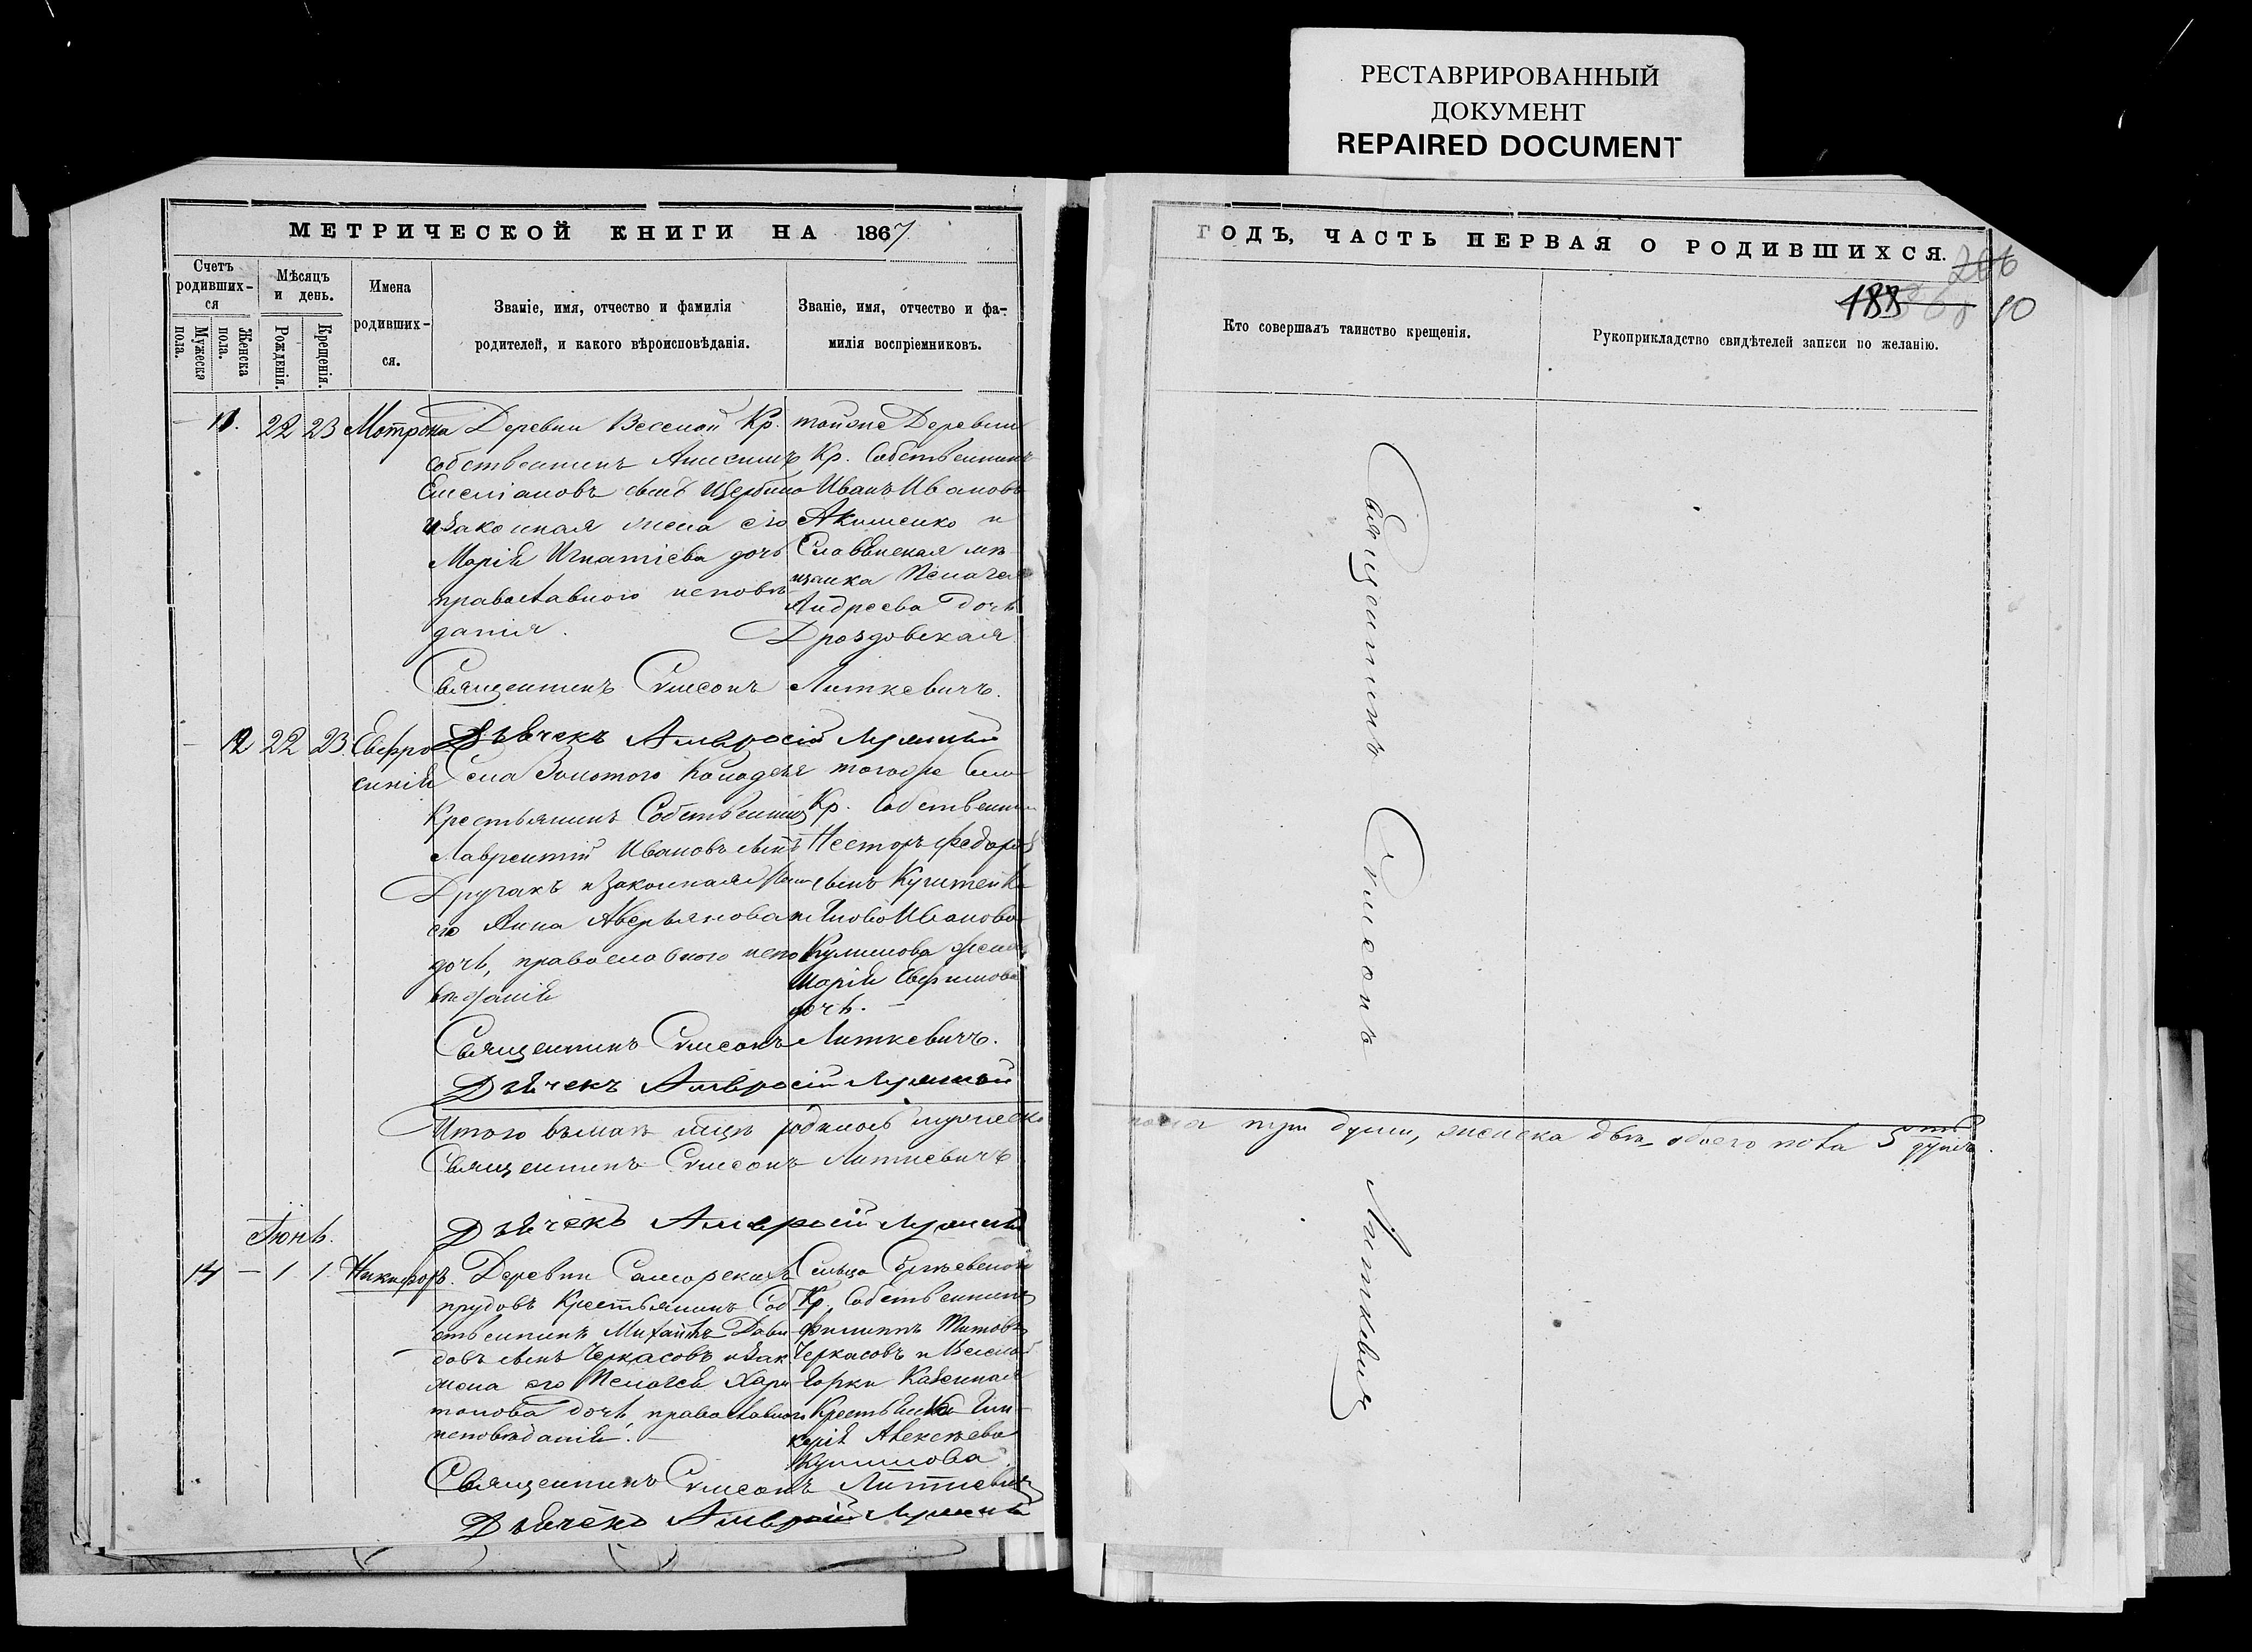 РЕСТАВРИРОВАННЫЙ
ДОКУМЕНТ
REPAIRED DOCUMENT
МЕТРИЧЕСКОЙ КНИГИ НА 1867
Счетъ родивших-ся
Мужеска пола.
Женска пола.
Мѣсяцъ и день.
Рожденія.
Крещенія.
Имена родивших-ся.
Званіе, имя, отчество и фамилія родителей, и какого вѣроисповѣданія.
Званіе, имя, отчество и фа-милія воспріемниковъ.
— 11. 22 23 Мотрона
Деревни Веселой Кр.
собственникъ Анисимъ
Емеліановъ сынъ Щербина
и законная жена его
Марія Игнатіева дочь
православного исповѣ-
данія.
тойже Деревни
Кр. Собственникъ
Иванъ Ивановъ
Акименко и
Славянская мѣ-
щанка Пелагея
Андреева дочь
Дроздовская.
Священникъ Симеонъ Литкевичъ.
Дьячекъ Амвросій
— 12 22 23. Евфро-
синія
Села Золотого Колодезя
Крестьянинъ Собственникъ
Лаврентій Ивановъ сынъ
и законная жена
его Анна Аверьянова
дочь, православного испо
вѣданія
тогоже Села
Кр. Собственникъ
Несторъ Федоровъ
сынъ
Марія Ефимова
дочь.
Священникъ Симеонъ Литкевичъ.
Дьячекъ Амвросій
Итого въ маѣ мцѣ родилось мужеска
Священникъ Симеонъ Литкевичъ
Дьячекъ Амвросій
Іюнь.
14 — 1 1 Никифоръ.
Деревни Самарскихъ
прудовъ Крестьянинъ Соб
ственникъ Михаилъ Дави
довъ сынъ Черкасовъ и зак
жена его Пелагея Хари
тонова дочь, православного
исповѣданія. —
Сельца
Кр. Собственникъ
Филиппъ Титовъ
Черкасовъ и Веселой
Горки Казенная
Крестьянка Гли-
керія Алексѣева
Священникъ Симеонъ Литкевичъ
Дьячекъ Амвросій
ГОДЪ, ЧАСТЬ ПЕРВАЯ О РОДИВШИХСЯ.
206
188
10
Кто совершалъ таинство крещенія.
Рукоприкладство свидѣтелей записи по желанію.
Священникъ Симеонъ Литкевичъ
пола три души, женска двѣ обоего пола 5 душъ.